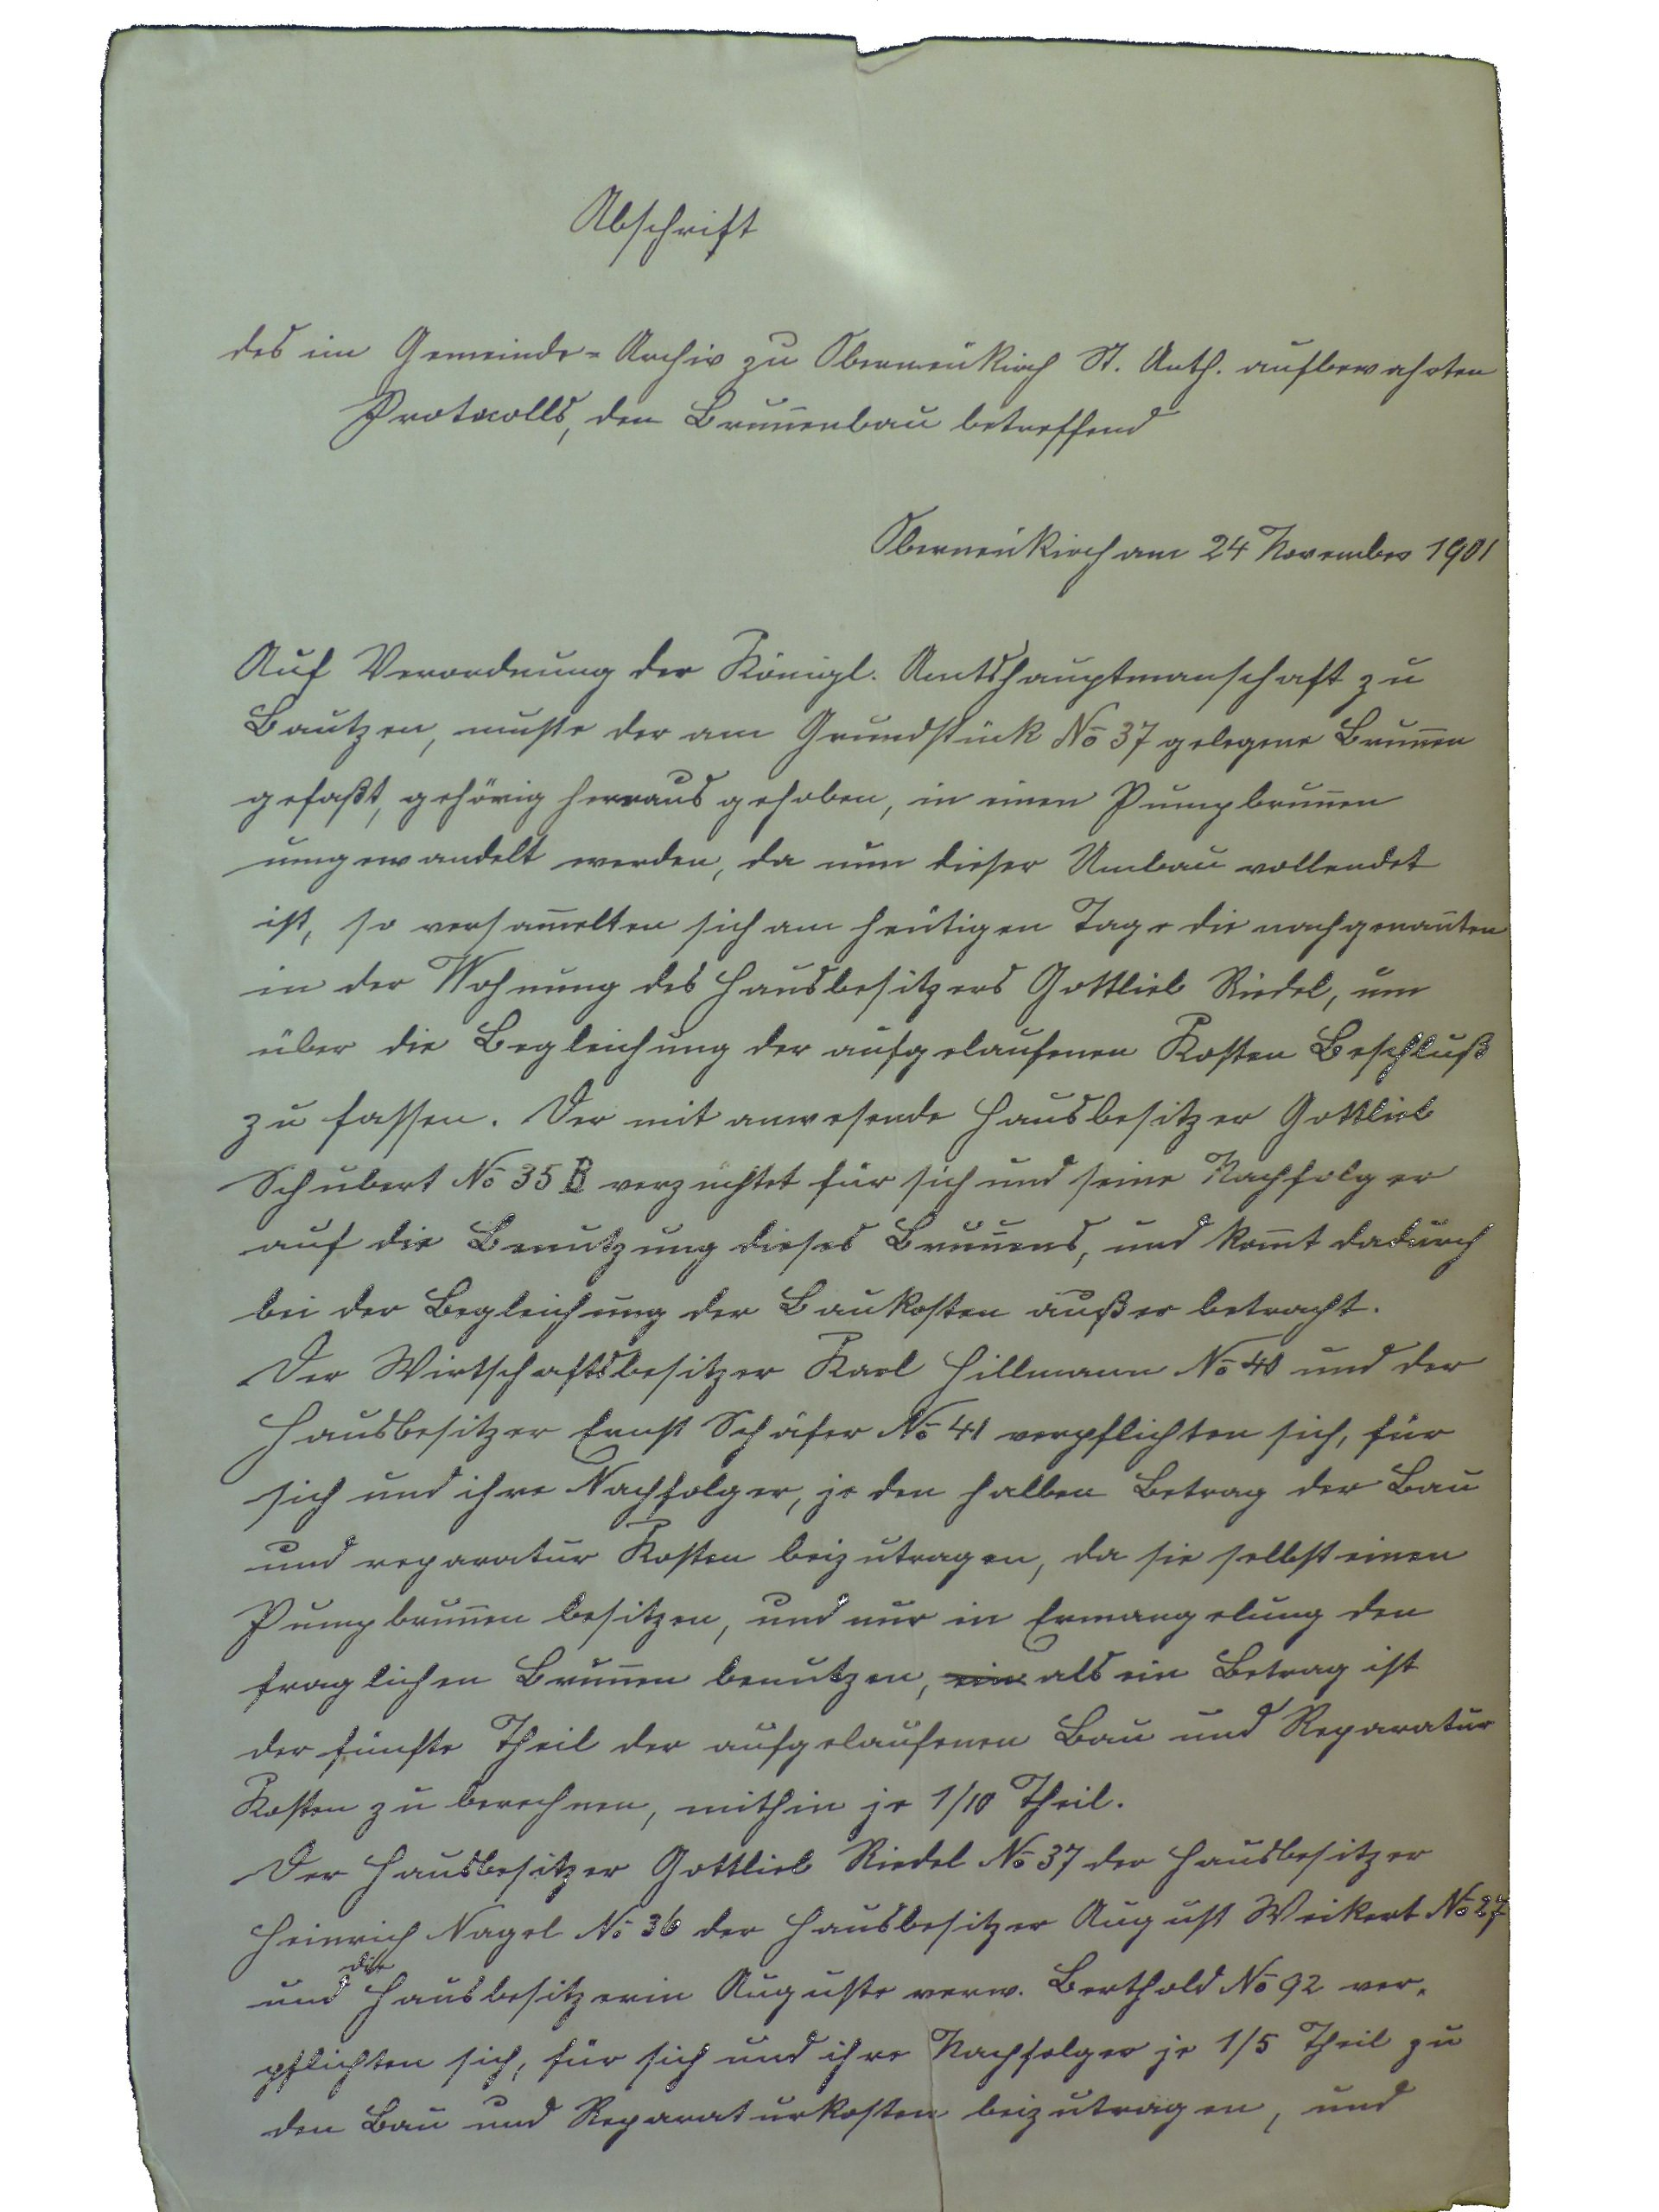 Abschrift
des im Gemeinde-Archiv zu Oberneukirch St. Anth. aufbewahrten
Protocolls, den Bruñenbau betreffend
Oberneukirch am 24 November 1901
Auf Verordnung der Königl. Amtshauptmanschaft zu
Bautzen, muste der am Grundstück No 37 gelegene Bruñen
gefaßt, gehörig herraus gehoben, in einen Pumpbruñen
umgewandelt werden, da nun dieser Umbau vollendet
ist, so versam̄elten sich am heutigen Tage die nachgenañten
in der Wohnung des Hausbesitzers Gottlieb Riedel, um
über die Begleichung der aufgelaufenen Kosten Beschluß
zu fassen. Der mit anwesende Hausbesitzer Gottlieb
Schubert No 35 B verzichtet für sich und seine Nachfolger
auf die Benutzung dieses Bruñens, und kom̄t dadurch
bei der Begleichung der Baukosten außer betracht.
Der Wirtschaftsbesitzer Karl Hillmann No 40 und der
Hausbesitzer Ernst Schäfer No 41 verpflichten sich, für
sich und ihre Nachfolger, je den halben Betrag der Bau
und reparatur Kosten beizutragen, da sie selbst einen
Pumpbruñen besitzen, und nur in Ermangelung den
fraglichen Bruñen benutzen, ein als ein Betrag ist
der fünfte Theil der aufgelaufenen Bau und Reparatur
Kosten zu berechnen, mithin je 1/10 Theil.
Der Hausbesitzer Gottlieb Riedel No 37 der Hausbesitzer
Heinrich Nagel No 36 der Hausbesitzer August Weikert No 27
und die Hausbesitzerin Auguste verw. Berthold No 92 ver-
pflichten sich, für sich und ihre Nachfolger je 1/5 Theil zu
den Bau und Reparaturkosten beizutragen, und